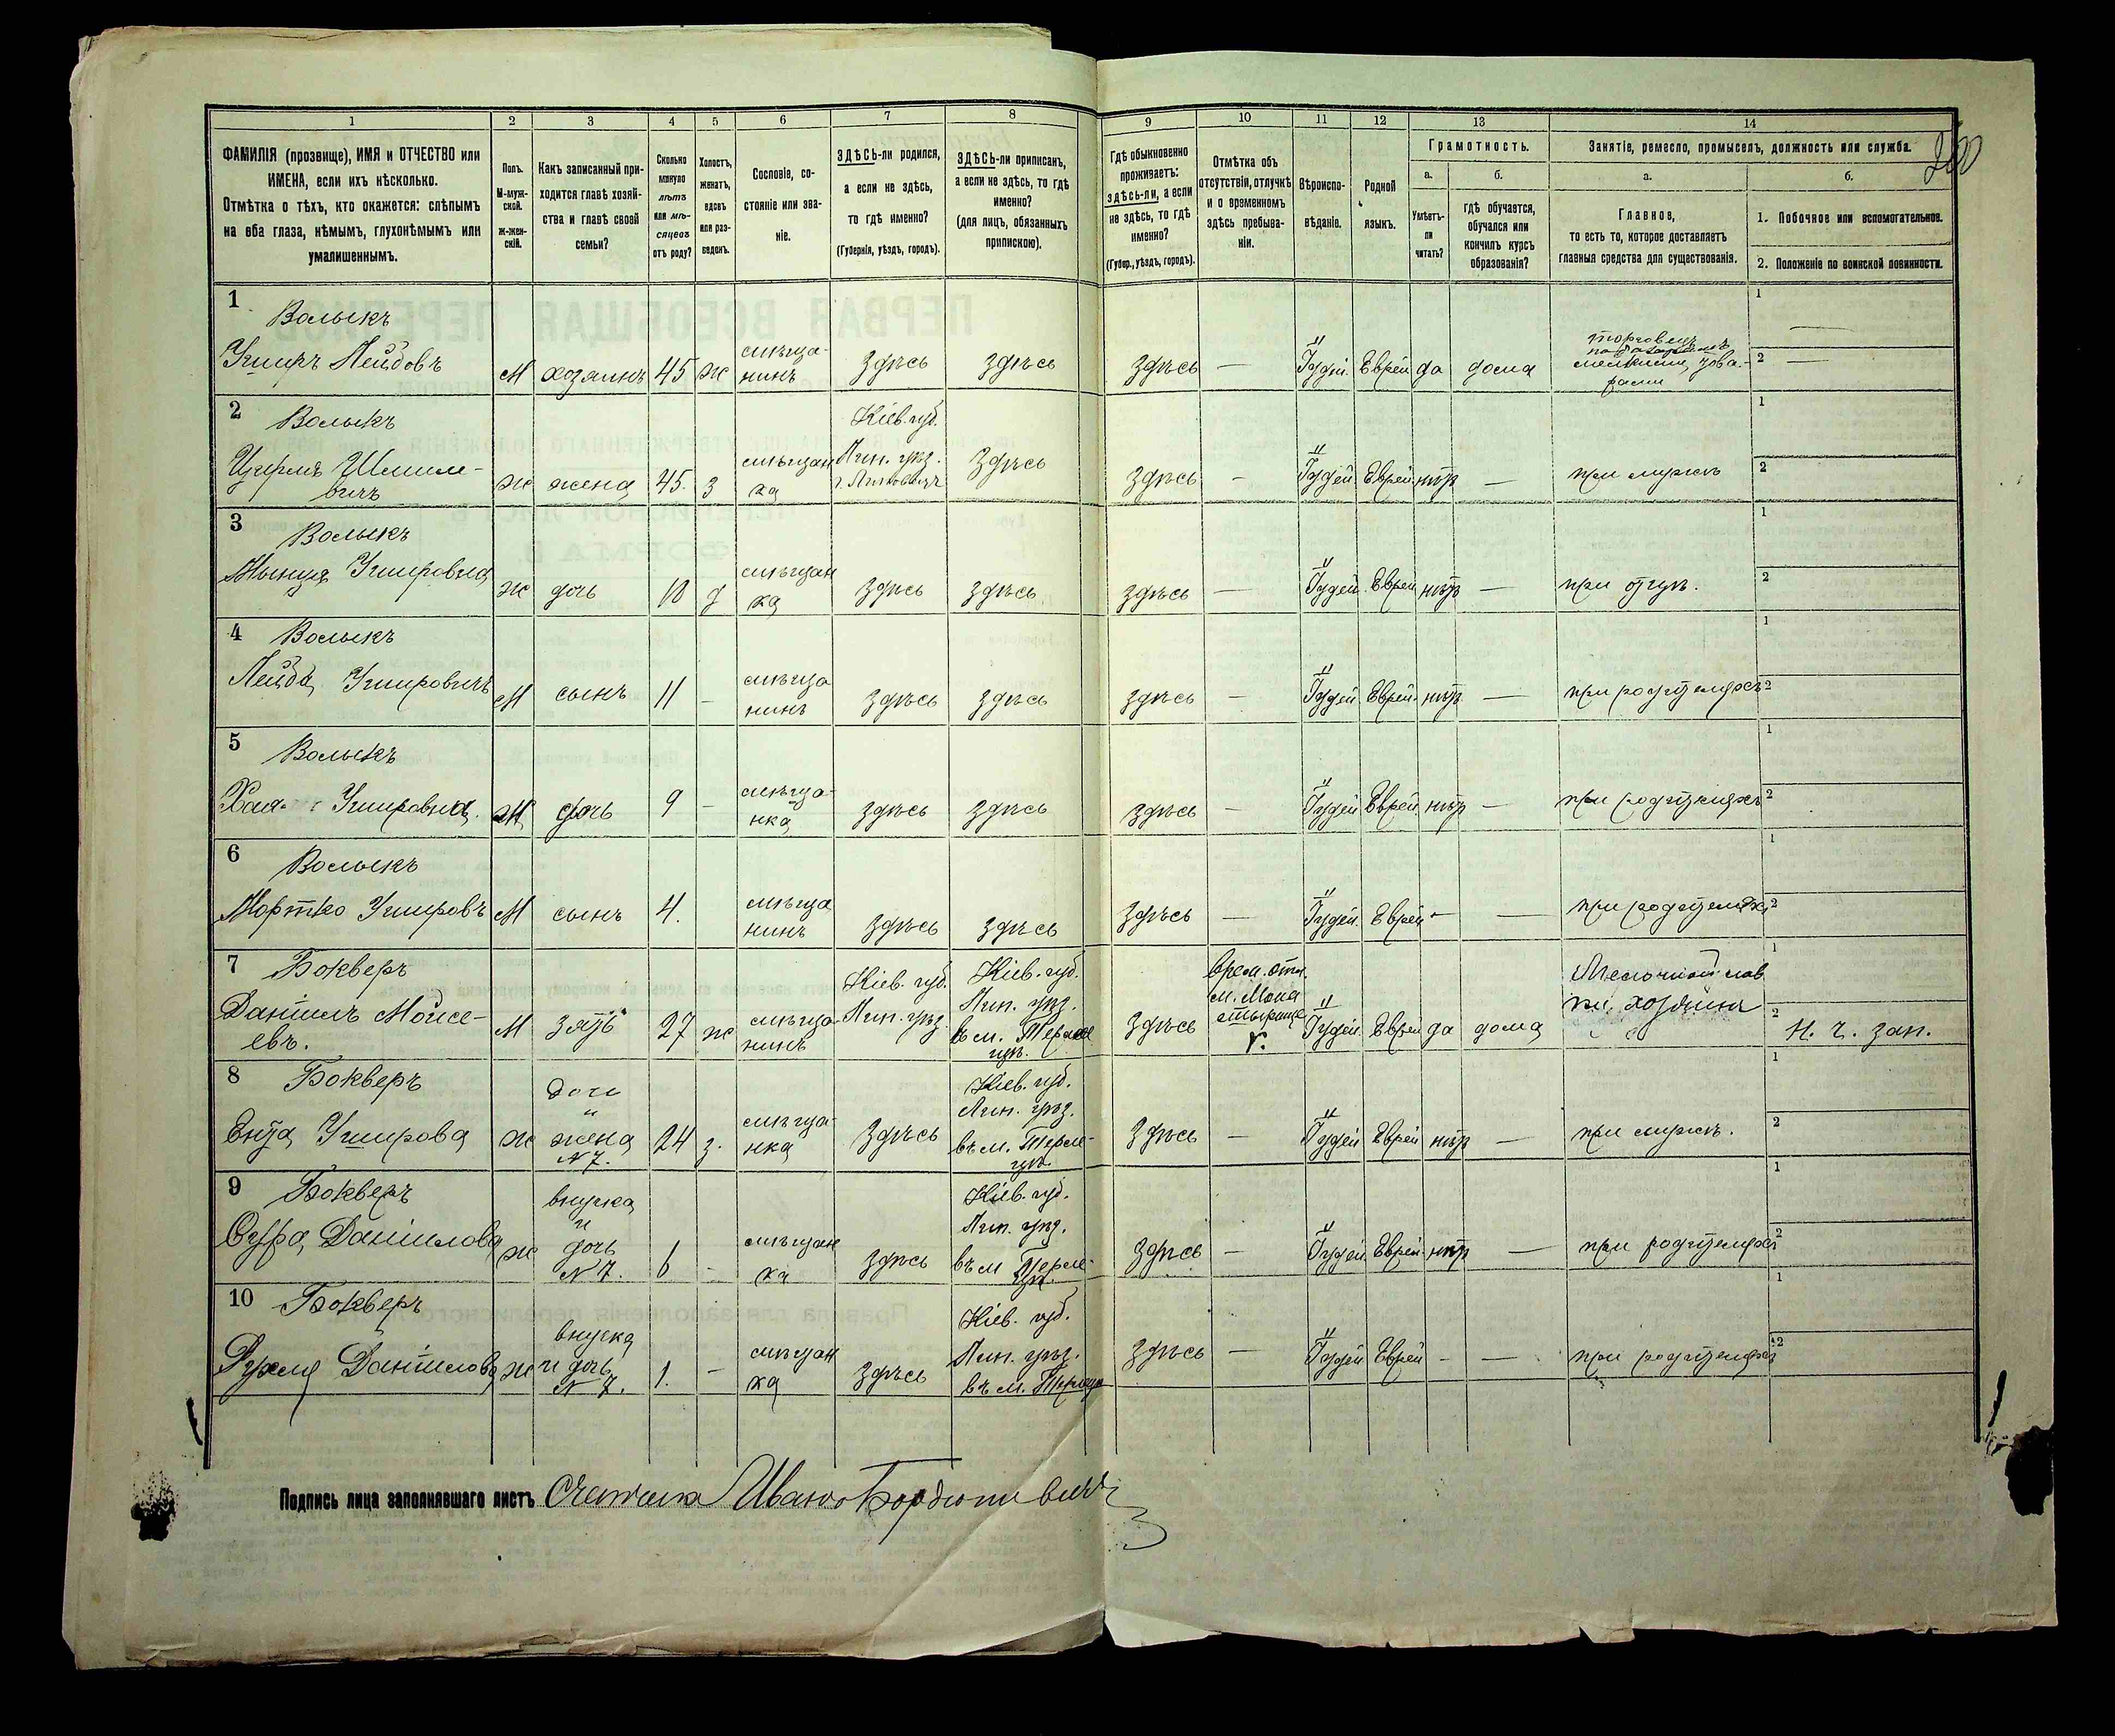 200
1 2 3 4 5 6 7 8 9 10 11 12 13 14
ФАМИЛІЯ (прозвище), ИМЯ и ОТЧЕСТВО или
ИМЕНА, если ихъ нѣсколько.
Отмѣтка о тѣхъ, кто окажется: слѣпымъ
на оба глаза, нѣмымъ, глухонѣмымъ или
умалишеннымъ.
Полъ.
М-муж-
ской.
ж-жен-
скій.
Какъ записанный при-
ходится главѣ хозяй-
ства и главѣ своей
семьи?
Сколько
минуло
лѣтъ
или мѣ-
сяцевъ
отъ роду?
Холостъ,
женатъ,
вдовъ
или раз-
веденъ.
Сословіе, со-
стояніе или зва-
ніе.
ЗДѢСЬ-ли родился,
а если не здѣсь,
то гдѣ именно?
(Губернія, уѣздъ, городъ).
ЗДѢСЬ-ли приписанъ,
а если не здѣсь, то гдѣ
именно?
(для лицъ, обязанныхъ
припискою).
Гдѣ обыкновенно
проживаетъ:
здѣсь-ли, а если
не здѣсь, то гдѣ
именно?
(Губер., уѣздъ, городъ).
Отмѣтка объ
отсутствіи, отлучкѣ
и о временномъ
здѣсь пребыва-
ніи.
Вѣроиспо-
вѣданіе.
Родной
языкъ.
Грамотность.
а.
Умѣетъ-
ли
читать?
б.
гдѣ обучается,
обучался или
кончилъ курсъ
образованія?
Занятіе, ремесло, промыселъ, должность или служба.
а.
Главное,
то есть то, которое доставляетъ
главныя средства для существованія.
б.
1. Побочное или вспомогательное.
2. Положеніе по воинской повинности.
1
Волыкъ
Ушеръ Лейбовъ
М хозяинъ 45 ж
мѣща-
нинъ
здѣсь здѣсь здѣсь — Іудей Еврей да дома
торговецъ
мелкими това-
рами
1 —
2 —
2
Волыкъ
Шмиле-
вичъ
ж жена 45. з
мѣщан
ка
Кіев. губ.
Лип. уѣз.
г. Липовецъ
здѣсь здѣсь — Іудей Еврей нѣтъ — при мужѣ
1
2
3
Волыкъ
Ушировна
ж дочь 10 д
мѣщан
ка
здѣсь здѣсь здѣсь — Іудей Еврей нѣтъ — при отцѣ.
1
2
4 Волыкъ
Лейба Ушировичъ
М сынъ 11 -
мѣща
нинъ
здѣсь здѣсь здѣсь — Іудей Еврей нѣтъ — при родителяхъ
1
2
5
Волыкъ
Хая Ушировна.
Ж дочь 9 -
мѣща-
нка
здѣсь здѣсь здѣсь — Іудей Еврей нѣтъ — при родителяхъ
1
2
6
Волыкъ
Мортко Ушировъ
М сынъ 4.
мѣща
нинъ
здѣсь здѣсь здѣсь — Іудей Еврей - — при родителяхъ
1
2
7 Бокверъ
Даніилъ Мойсе-
евъ.
М зять 27 ж
мѣща-
нинъ
Кіев. губ.
Лип. уѣз.
Кіев. губ.
Лип. уѣз.
въ м. Терли
цѣ.
здѣсь
врем. отл.
м. Мона
стырище
Іудей Еврей да дома
Мелочной лав
ки, хозяинъ
1
2 Н. ч. зап.
8 Бокверъ
Ента Уширова
ж
дочь
и
жена
N 7.
24 з.
мѣща-
нка
здѣсь
Кіев. губ.
Лип. уѣз.
въ м. Терли-
цѣ.
здѣсь — Іудей Еврей нѣтъ — при мужѣ.
1
2
9 Бокверъ
Сура Даніилова
ж
внучка
и
дочь
N 7.
6 -
мѣщан
ка
здѣсь
Кіев. губ.
Лип. уѣз.
въ м Терли-
цѣ.
здѣсь — Іудей Еврей нѣтъ — при родителяхъ
1
2
10 Бокверъ
Рухля Даніилова
ж
внучка
и дочь
N 7.
1. -
мѣщан
ка
здѣсь
Кіев. губ.
Лип. уѣз.
въ м. Терлица
здѣсь — Іудей Еврей - — при родителяхъ
1
2
Подпись лица заполнявшаго листъ Иванъ